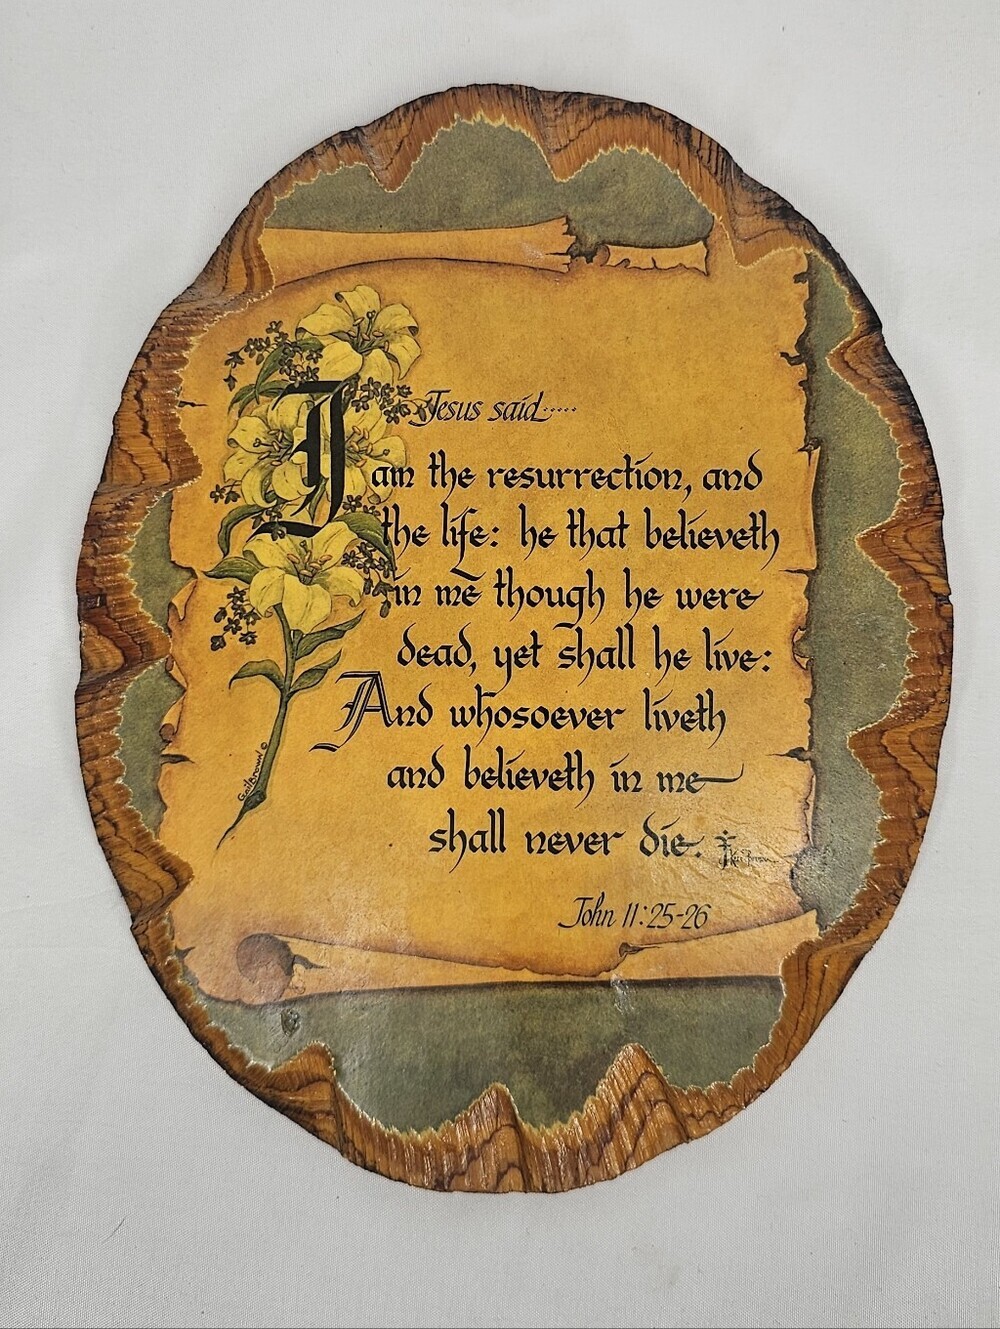 Jesus said.....
I am the resurrection, and
the life: he that believeth
in me though he were
dead, yet shall he live:
And whosoever liveth
and believeth in me
shall never die.
John 11:25-26
Gail Brown